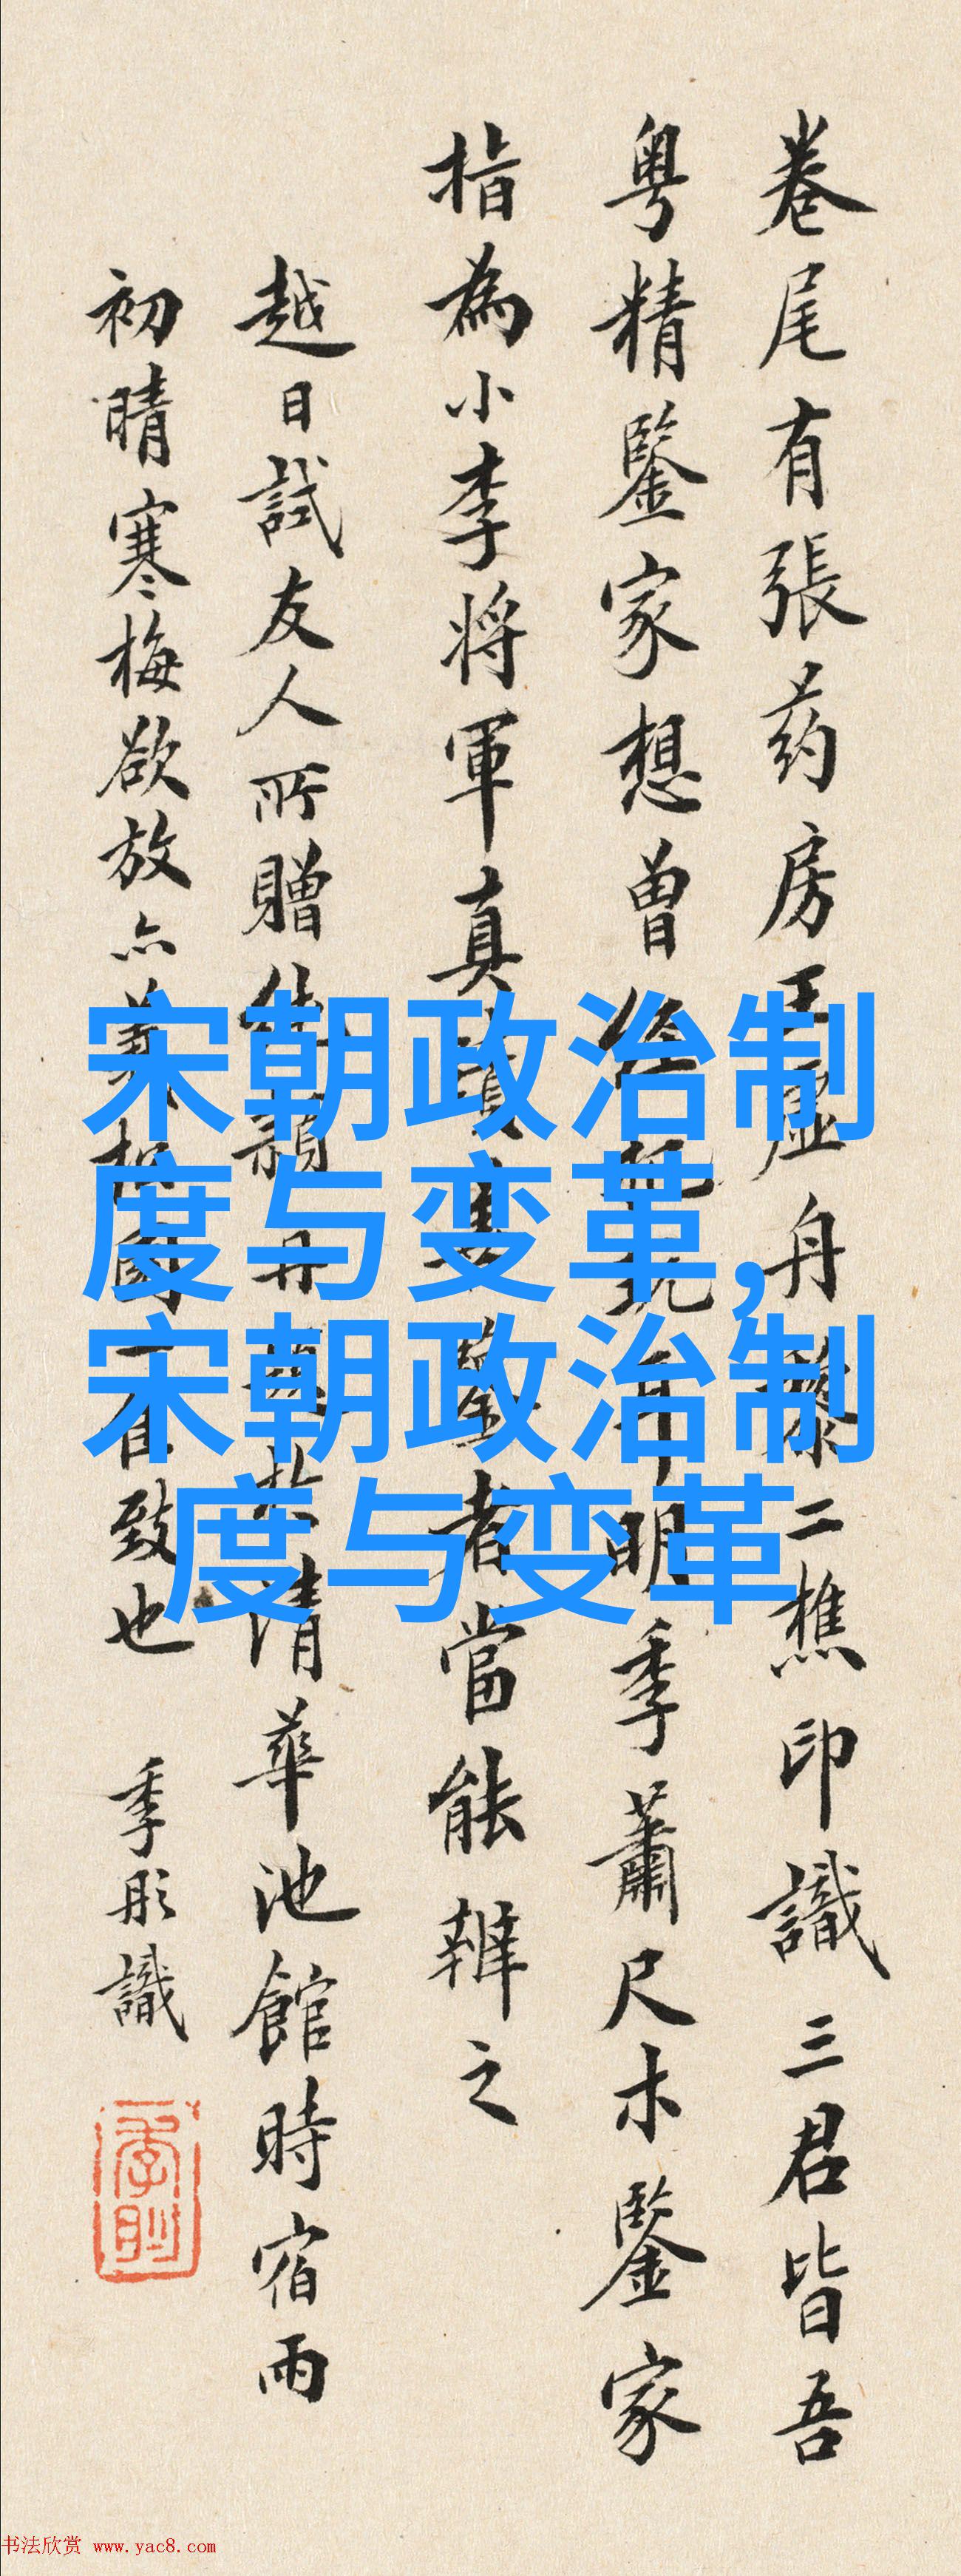 卷尾有張药房王虛舟黎二樵印識三君皆吾
粵精鑒家想曾玩耳明季蕭尺木鑒家
指為小李将軍真蹟鑒者當能辨之
越日試友人所贈於清華池館時宿雨
初晴寒梅欲放亦一致也 季彤識
宋朝政治制
度与变革,
宋朝政治制
度与变革
书法欣赏 www.yac8.com